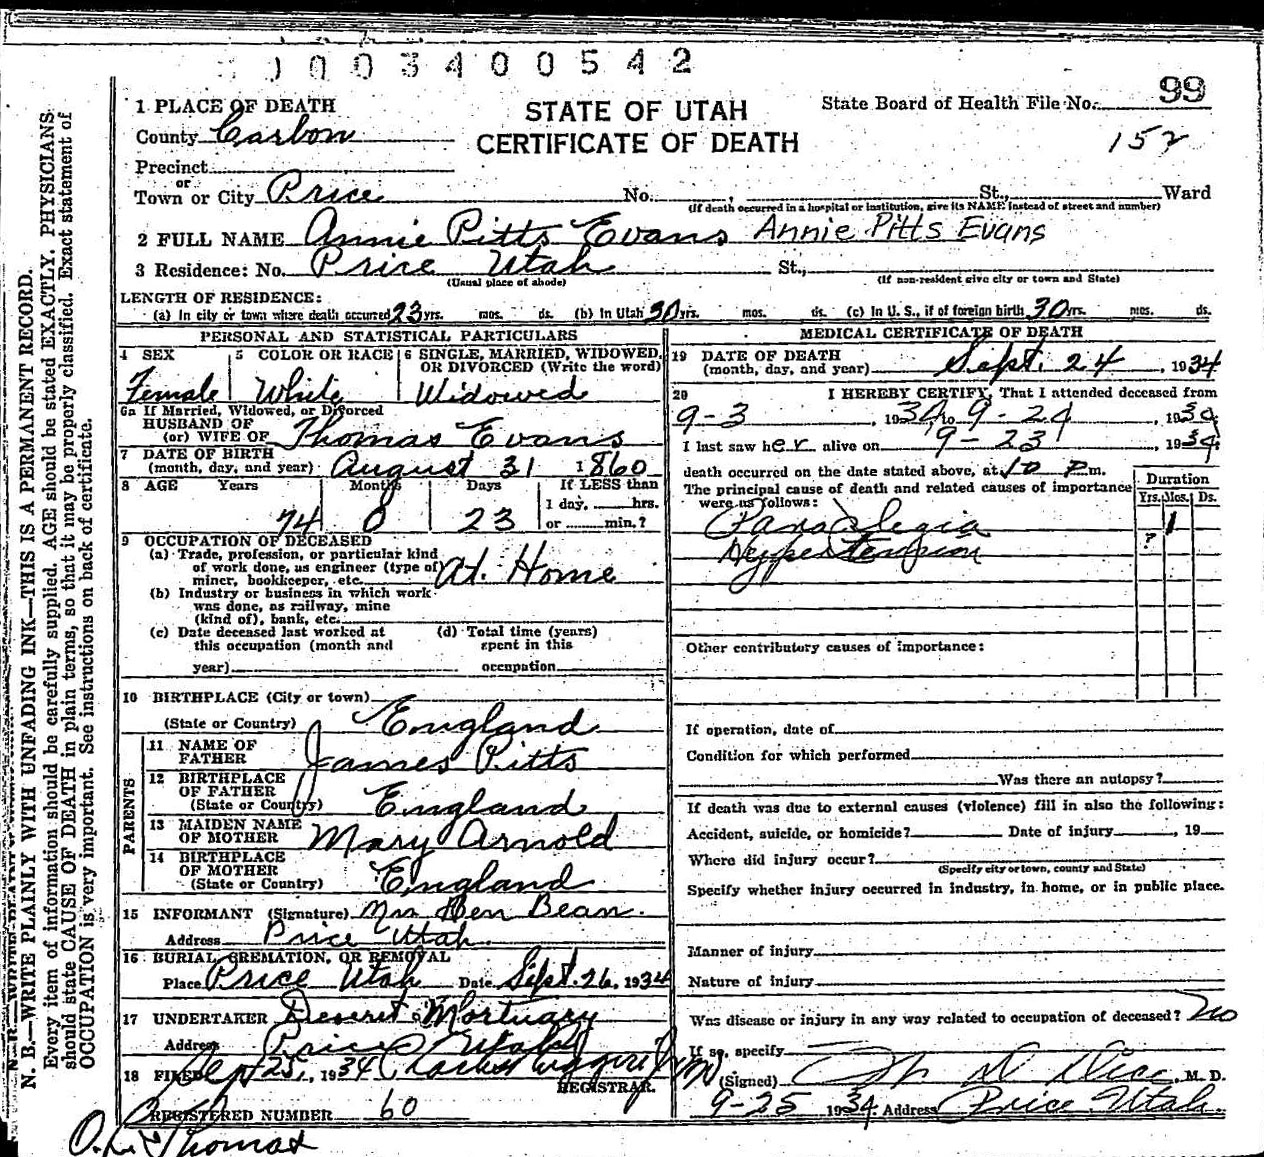 1003400542
99
1 PLACE OF DEATH
STATE OF UTAH
CERTIFICATE OF DEATH
State Board of Health File No. 99
152
County Carbon
Precinct
or
Town or City Price No. , St., Ward
(If death occurred in a hospital or institution, give its NAME instead of street and number)
2 FULL NAME Annie Pitts Evans Annie Pitts Evans
3 Residence: No. Price Utah St.,
(Usual place of abode) (If non-resident give city or town and State)
LENGTH OF RESIDENCE:
(a) In city or town where death occurred 23 yrs. mos. ds. (b) In Utah 30 yrs. mos. ds. (c) In U. S., if of foreign birth 30 yrs. mos. ds.
PERSONAL AND STATISTICAL PARTICULARS
4 SEX Female
5 COLOR OR RACE White
6 SINGLE, MARRIED, WIDOWED, OR DIVORCED (Write the word) Widowed
6a If Married, Widowed, or Divorced
HUSBAND OF
(or) WIFE OF Thomas Evans
7 DATE OF BIRTH
(month, day, and year) August 31 1860
8 AGE Years Months Days If LESS than
1 day, hrs.
74 0 23 or min.?
9 OCCUPATION OF DECEASED
(a) Trade, profession, or particular kind
of work done, as engineer (type of)
miner, bookkeeper, etc. At Home
(b) Industry or business in which work
was done, as railway, mine
(kind of), bank, etc.
(c) Date deceased last worked at
this occupation (month and
year)
(d) Total time (years)
spent in this
occupation
10 BIRTHPLACE (City or town)
(State or Country) England
PARENTS
11 NAME OF
FATHER James Pitts
12 BIRTHPLACE
OF FATHER
(State or Country) England
13 MAIDEN NAME
OF MOTHER Mary Arnold
14 BIRTHPLACE
OF MOTHER
(State or Country) England
15 INFORMANT (Signature) Mrs Ben Bean.
Address Price Utah.
16 BURIAL, CREMATION, OR REMOVAL
Place Price Utah Date Sept. 26, 1934
17 UNDERTAKER Deseret Mortuary
Address Price Utah
18 FILED Sept 25, 1934
REGISTRAR.
REGISTERED NUMBER 60
Thomas
MEDICAL CERTIFICATE OF DEATH
19 DATE OF DEATH
(month, day, and year) Sept. 24, 1934
20 I HEREBY CERTIFY, That I attended deceased from
9-3, 1934, to 9-24, 1934
I last saw her alive on 9-23, 1934
death occurred on the date stated above, at 10 P m.
The principal cause of death and related causes of importance
were as follows:
Duration
Yrs. Mos. Ds.
1
Hypertension ?
Other contributory causes of importance:
If operation, date of
Condition for which performed
Was there an autopsy?
If death was due to external causes (violence) fill in also the following:
Accident, suicide, or homicide? Date of injury , 19
Where did injury occur?
(Specify city or town, county and State)
Specify whether injury occurred in industry, in home, or in public place.
Manner of injury
Nature of injury
Was disease or injury in any way related to occupation of deceased? No
If so, specify
(Signed) M. D.
9-25 1934 Address Price Utah.
N. B.—WRITE PLAINLY WITH UNFADING INK—THIS IS A PERMANENT RECORD.
Every item of information should be carefully supplied. AGE should be stated EXACTLY. PHYSICIANS
should state CAUSE OF DEATH in plain terms, so that it may be properly classified. Exact statement of
OCCUPATION is very important. See instructions on back of certificate.